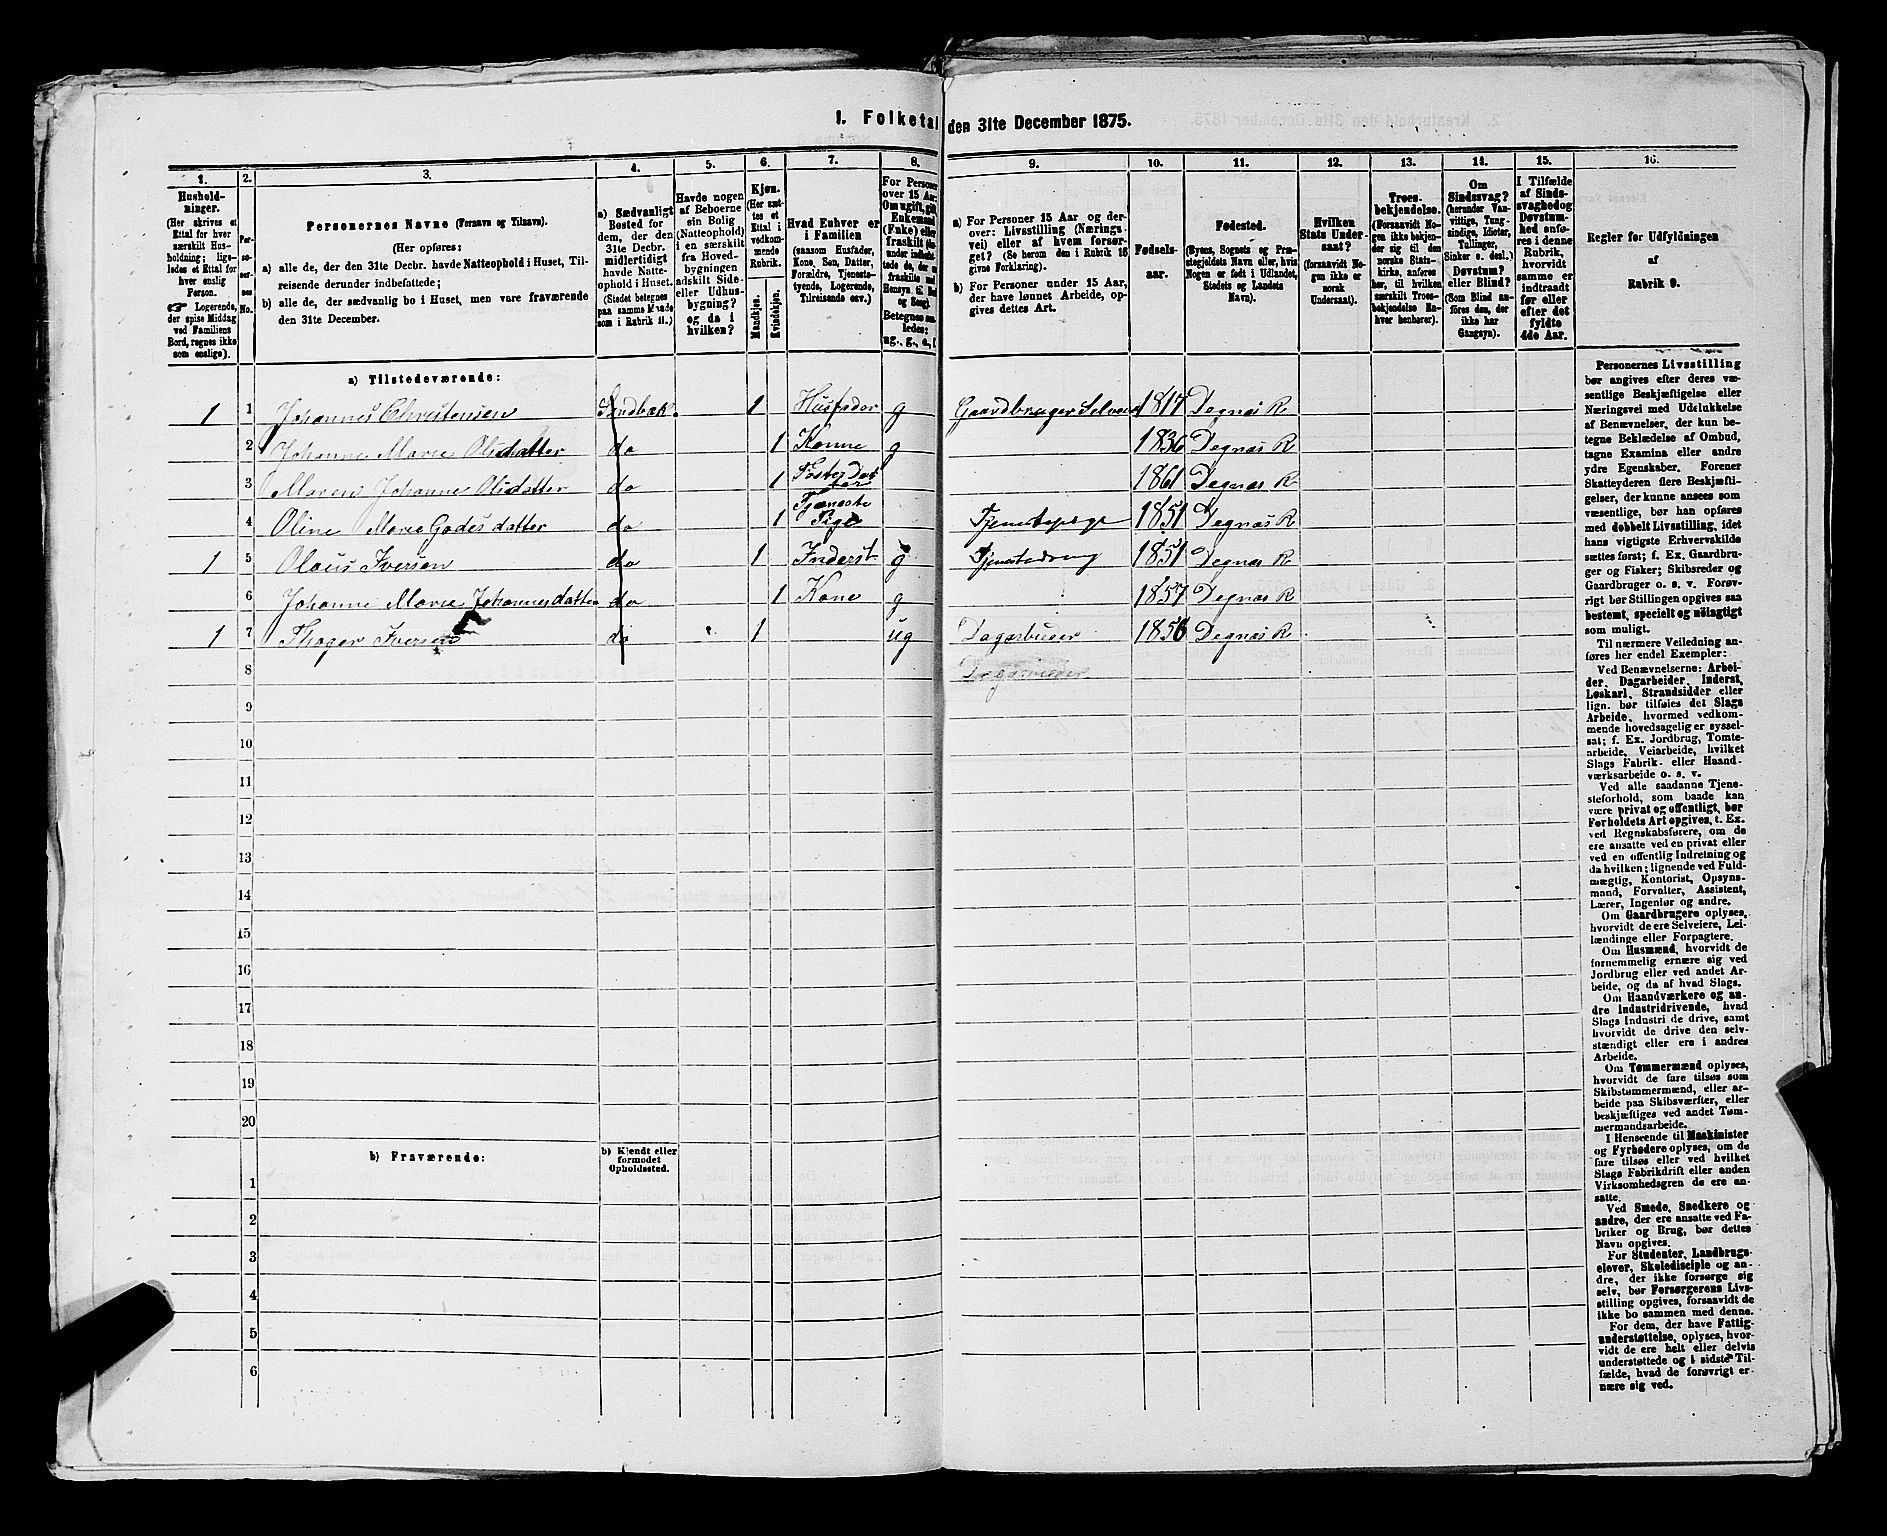 1. Folketal den 31te December 1875.
1. 2. 3. 4. 5. 6. 7. 8. 9. 10. 11. 12. 13. 14. 15. 16.
Hushold-
ninger.
(Her skrives et
Ettal for hver
særskilt Hus-
holdning; lige-
ledes et Ettal for
hver enslig
Person.
☞ Logerende,
der spise Middag
ved Familiens
Bord, regnes ikke
som enslige).
Per-
so-
ner-
nes
No.
Personernes Navne (Fornavn og Tilnavn).
(Her opføres:
a) alle de, der den 31te Decbr. havde Natteophold i Huset, Til-
reisende derunder indbefattede;
b) alle de, der sædvanlig bo i Huset, men vare fraværende
den 31te December.
a) Sædvanligt
Bosted for
dem, der den
31te Decbr.
midlertidigt
havde Natte-
ophold i Huset.
(Stedet betegnes
paa samme Maade
som i Rubrik 11.)
Havde nogen
af Beboerne
sin Bolig
(Natteophold)
i en særskilt
fra Hoved-
bygningen
adskilt Side-
eller Udhus-
bygning?
og da i
hvilken?
Kjøn.
(Her sæt-
tes et
Ettal i
vedkom-
mende
Rubrik.
Mandkjøn.
Kvindekjøn.
Hvad Enhver er
i Familien
(saasom Husfader,
Kone, Søn, Datter,
Forældre, Tjeneste-
tyende, Logerende,
Tilreisende osv.)
For Personer
over 15 Aar:
Om ugift, gift,
Enkemand
(Enke) eller
fraskilt
Betegnes saa-
ledes:
ug., g., e., f.
a) For Personer 15 Aar og der-
over: Livsstilling (Nærings-
vei) eller af hvem forsør-
get? (Se herom den i Rubrik 16
givne Forklaring).
b) For Personer under 15 Aar,
der have lønnet Arbeide, op-
gives dettes Art.
Fødsels-
aar.
Fødested.
(Byens, Sognets og Præ-
stegjeldets Navn eller, hvis
Nogen er født i Udlandet,
Stedets og Landets
Navn).
Hvilken
Stats Under-
saat?
(forsaavidt No-
gen ikke er
norsk
Undersaat).
Troes-
bekjendelse.
(Forsaavidt No-
gen ikke bekjen-
der sig til den
norske Stats-
kirke, anføres
her, til hvilken
særskilt Troes-
bekjendelse En-
hver henhører).
Om
Sindssvag?
(herunder Van-
vittige, Tung-
sindige, Idioter,
Tullinger,
Sinker o. desl.)
Døvstum?
eller Blind?
(Som Blind an-
føres den, der
ikke har
Gangsyn).
I Tilfælde
af Sinds-
svaghed og
Døvstum-
hed anfø-
res i denne
Rubrik,
hvorvidt
samme er
indtraadt
før eller
efter det
fyldte
4de Aar.
Regler for Udfyldningen
af
Rubrik 9.
a) Tilstedeværende:
1 1 Johannes Christensen Sandbæk. 1 Husfader g Gaardbruger Selveier 1817 Degnæs R
2 Johanne Marie Olsdatter do 1 Konne g 1836 Degnæs R
3 Maren Johanne Olsdatter do 1 Foster Datter 1861 Degnæs R
4 Oline Marie do 1 Tjeneste Pige Tjenestepige 1851 Degnæs R
1 5 Olaus Iversen do 1 Inderst g Tjenestedreng 1851 Degnæs R
6 Johanne Marie Johannesdatter do 1 Kone g 1857 Degnæs R
1 7 Thoger Iversen do 1 ug 1856 Degnæs R
8
9
10
11
12
13
14
15
16
17
18
19
20
b) Fraværende:
b) Kjendt eller
formodet
Opholdssted.
1
2
3
4
5
6
Personernes Livsstilling
bør angives efter deres væ-
sentlige Beskjæftigelse eller
Næringsvei med Udelukkelse
af Benævnelser, der kun be-
tegne Beklædelse af Ombud,
tagne Examina eller andre
ydre Egenskaber. Forener
Skatteyderen flere Beskjæfti-
gelser, der kunne ansees som
væsentlige, bør han opføres
med dobbelt Livsstilling, idet
hans vigtigste Erhvervskilde
sættes først; f. Ex. Gaardbru-
ger og Fisker; Skibsreder og
Gaardbruger o. s. v. Forøv-
rigt bør Stillingen opgives saa
bestemt, specielt og nøiagtigt
som muligt.
Til nærmere Veiledning an-
føres her endel Exempler:
Ved Benævnelserne: Arbei-
der, Dagarbeider, Inderst,
Løskarl, Strandsidder eller
lign. bør tilføies det Slags
Arbeide, hvormed vedkom-
mende hovedsagelig er syssel-
sat; f. Ex. Jordbrug, Tomte-
arbeide, Veiarbeide, hvilket
Slags Fabrik- eller Haand-
værksarbeide o. s. v.
Ved alle saadanne Tjene-
steforhold, som baade kan
være privat og offentligt, bør
Forholdets Art opgives, t. Ex.
ved Regnskabsførere, om de
ere ansatte ved en privat eller
ved en offentlig Indretning og
da hvilken; lignende ved Fuld-
mægtig, Kontorist, Opsyns-
mand, Forvalter, Assistent,
Lærer, Ingeniør og andre.
Om Gaardbrugere oplyses,
hvorvidt de ere Selveiere, Lei-
lændinge eller Forpagtere.
Om Husmænd, hvorvidt de
fornemmelig ernære sig ved
Jordbrug eller ved andet Ar-
beide, og da af hvad Slags.
Om Haandværkere og an-
dre Industridrivende, hvad
Slags Industri de drive, samt
hvorvidt de drive den selv-
stændigt eller ere i andres
Arbeide.
Om Tømmermænd oplyses,
hvorvidt de fare tilsøs som
Skibstømmermænd, eller ar-
beide paa Skibsværfter, eller
beskjæftiges ved andet Tøm-
mermandsarbeide.
I Henseende til Maskinister
og Fyrbødere oplyses, om de
fare tilsøs eller ved hvilket
Slags Fabrikdrift eller anden
Virksomhedsgren de ere an-
satte.
Ved Smede, Snedkere og
andre, der ere ansatte ved Fa-
briker og Brug, bør dettes
Navn opgives.
For Studenter, Landbrugs-
elever, Skoledisciple og an-
dre, der ikke forsørge sig
selv, bør Forsørgerens Livs-
stilling opgives, forsaavidt de
ikke bo sammen med denne.
For dem, der have Fattig-
understøttelse, oplyses, hvor-
vidt de ere helt eller delvis
understøttede og i sidste Til-
fælde, hvad de forøvrigt er-
nære sig ved.